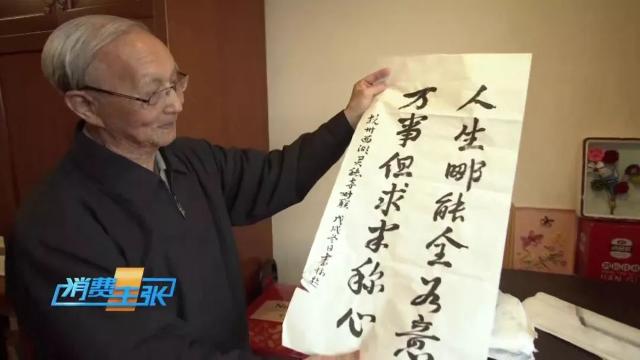 人生哪能全如意
万事但求半称心
杭州西湖灵隐寺对联 戊戌冬日书
消费主张